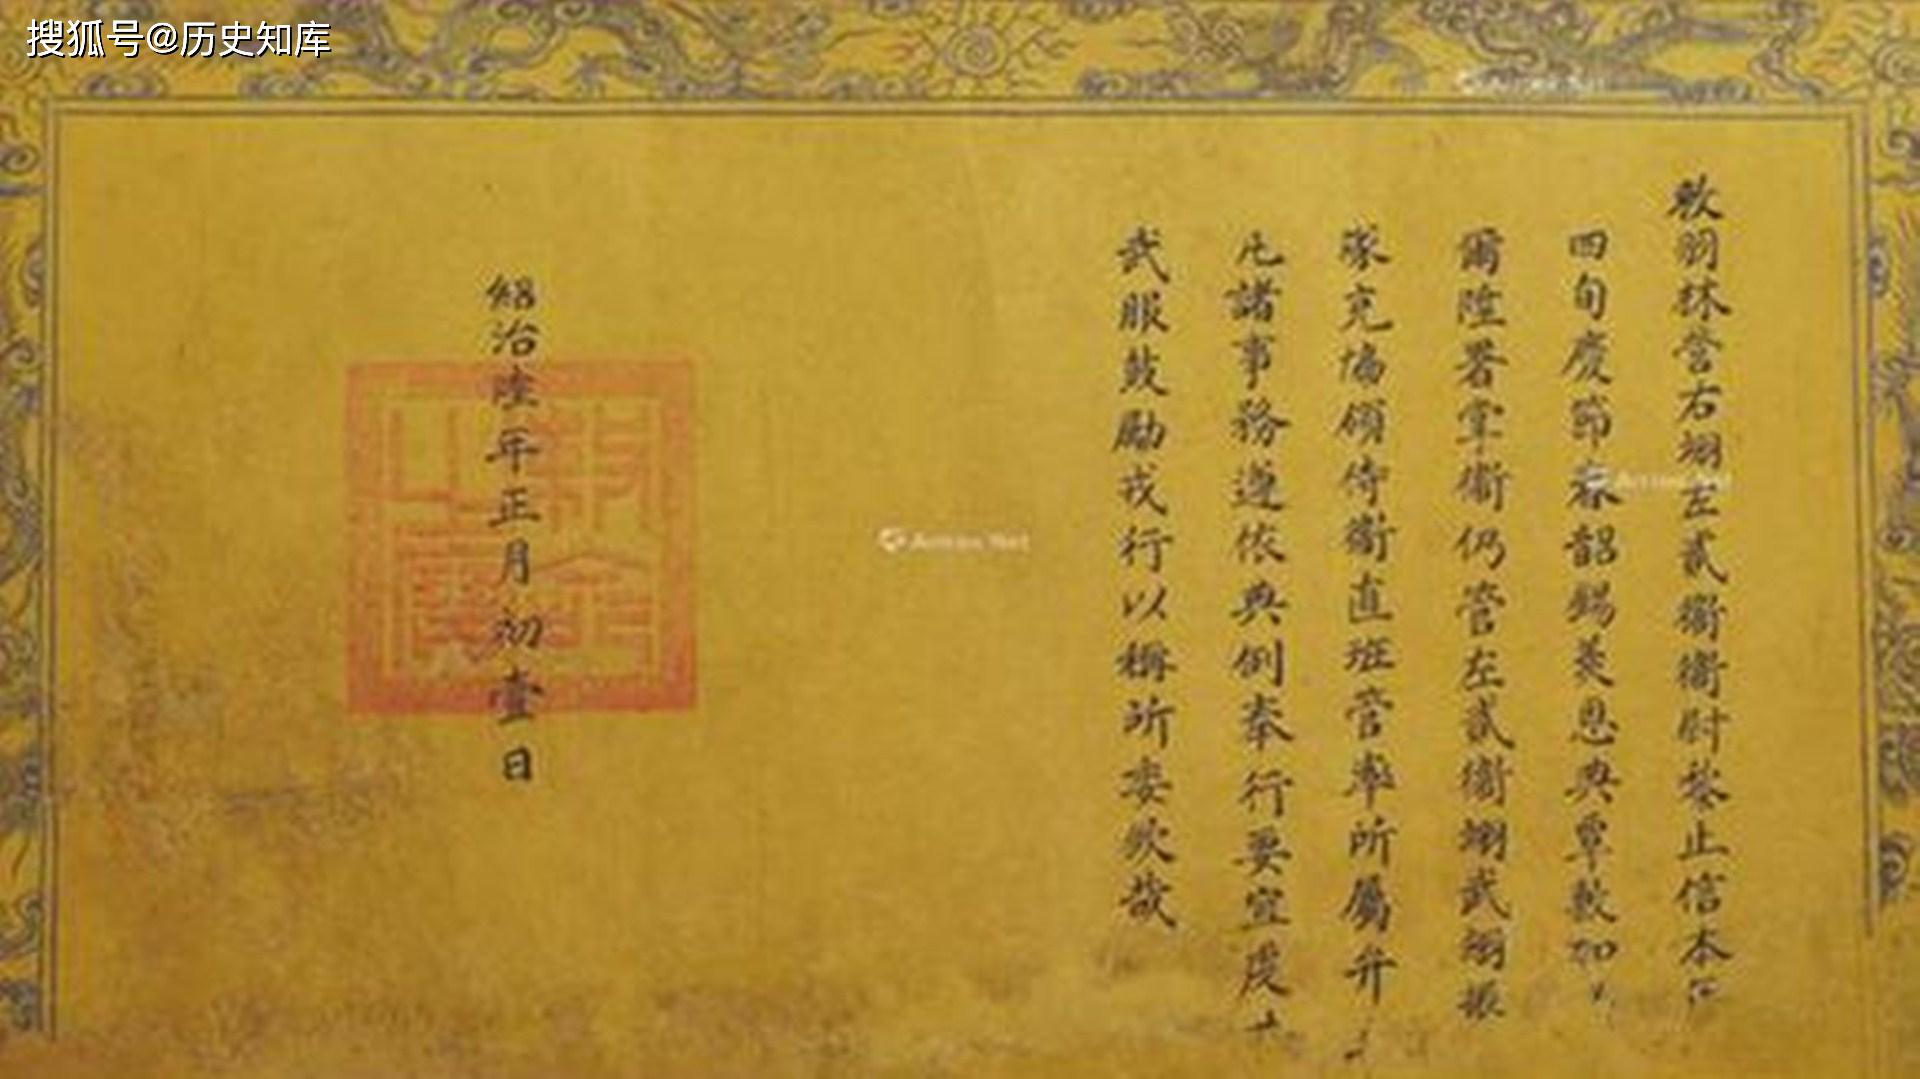 搜狐号@历史知库
敕羽林营右翊左貳衛衛尉黎止信本
四旬慶節春韶錫羨恩典覃敷加
爾陞署掌衛仍管左貳衛翊武翊振
隊充協領侍衛直班管率所屬弁
凡諸事務遵依典例奉行要宜虔
武服鼓勵戎行以稱所委欽哉
紹治陸年正月初壹日